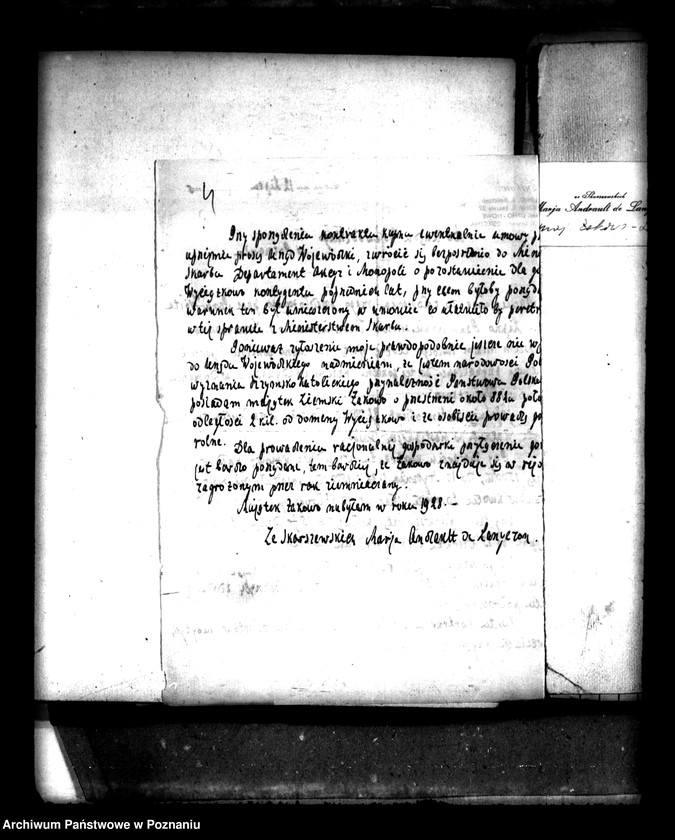 4
Przy sporządzeniu kontraktu kupna ewentualnie umowy
uprzejmie proszę Urząd Wojewódzki, zwrócić się bezpośrednio do
Skarbu Departament Akcyz i Monopoli o pozostawienie dla
Wyciążkowo kontyngentu poprzednich lat, przy czem byłoby
warunek ten był umieszczony w umowie co ułatwiło by
w tej sprawie z Ministerstwem Skarbu.
Ponieważ zgłoszenie moje prawdopodobnie jeszcze nie
do Urzędu Wojewódzkiego nadmieniam, że jestem narodowości
wyznania Rzymsko Katolickiego przynależność Państwowa
posiadam majątek ziemski Żakowo o przestrzeni około
odległości 2 kil. od domeny Wyciążkowo i że osobiście prowadzę
rolne.
Dla prowadzenia racjonalnej gospodarki przyłączenie
jest bardzo pożądane, tem bardziej, że Żakowo znajduje się w
zagrożonym przez rak ziemniaczany.
Majątek Żakowo nabyłam w roku 1928. –
Ze Skarszewskich Marja Andrault de Langeron.
ze Skarszewskich
Marja Andrault de
Archiwum Państwowe w Poznaniu